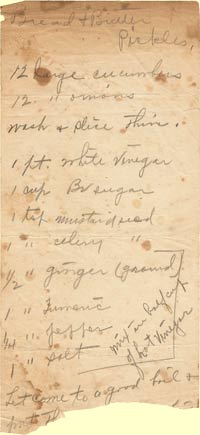 Bread & Butter
Pickles,
12 large cucumbers
12 " onions
wash & slice thin.
1 pt white vinegar
1 cup Br sugar
1 tsp mustard seed
1 " celery "
1/2 " ginger (ground)
1 " Tumeric
1/4 " pepper
1 " salt
mix in
of hot vinegar
Let come to a good boil &